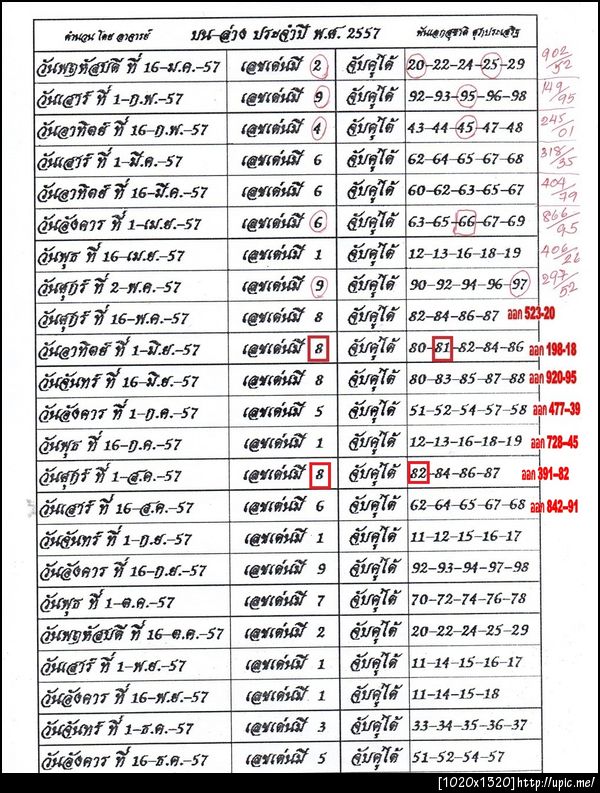 คำนวน โดย อาจารย์ บน-ล่าง ประจำปี พ.ศ. 2557 พันเอกสุชาติ ศุภประเสริฐ
วันพฤหัสบดี ที่ 16-ม.ค.-57 เลขเด่นมี 2 จับคู่ได้ 20-22-24-25-29 902/52
วันเสาร์ ที่ 1-ก.พ.-57 เลขเด่นมี 9 จับคู่ได้ 92-93-95-96-98 149/95
วันอาทิตย์ ที่ 16-ก.พ.-57 เลขเด่นมี 4 จับคู่ได้ 43-44-45-47-48 245/01
วันเสาร์ ที่ 1-มี.ค.-57 เลขเด่นมี 6 จับคู่ได้ 62-64-65-67-68 318/35
วันอาทิตย์ ที่ 16-มี.ค.-57 เลขเด่นมี 6 จับคู่ได้ 60-62-63-65-67 404/79
วันอังคาร ที่ 1-เม.ย.-57 เลขเด่นมี 6 จับคู่ได้ 63-65-66-67-69 866/95
วันพุธ ที่ 16-เม.ย.-57 เลขเด่นมี 1 จับคู่ได้ 12-13-16-18-19 406/26
วันศุกร์ ที่ 2-พ.ค.-57 เลขเด่นมี 9 จับคู่ได้ 90-92-94-96-97 297/52
วันศุกร์ ที่ 16-พ.ค.-57 เลขเด่นมี 8 จับคู่ได้ 82-84-86-87 ออก 523-20
วันอาทิตย์ ที่ 1-มิ.ย.-57 เลขเด่นมี 8 จับคู่ได้ 80-81-82-84-86 ออก 198-18
วันจันทร์ ที่ 16-มิ.ย.-57 เลขเด่นมี 8 จับคู่ได้ 80-83-85-87-88 ออก 920-95
วันอังคาร ที่ 1-ก.ค.-57 เลขเด่นมี 5 จับคู่ได้ 51-52-54-57-58 ออก 477-39
วันพุธ ที่ 16-ก.ค.-57 เลขเด่นมี 1 จับคู่ได้ 12-13-16-18-19 ออก 728-45
วันศุกร์ ที่ 1-ส.ค.-57 เลขเด่นมี 8 จับคู่ได้ 82-84-86-87 ออก 391-82
วันเสาร์ ที่ 16-ส.ค.-57 เลขเด่นมี 6 จับคู่ได้ 62-64-65-67-68 ออก 842-91
วันจันทร์ ที่ 1-ก.ย.-57 เลขเด่นมี 1 จับคู่ได้ 11-12-15-16-17
วันอังคาร ที่ 16-ก.ย.-57 เลขเด่นมี 9 จับคู่ได้ 92-93-94-97-98
วันพุธ ที่ 1-ต.ค.-57 เลขเด่นมี 7 จับคู่ได้ 70-72-74-76-78
วันพฤหัสบดี ที่ 16-ต.ค.-57 เลขเด่นมี 2 จับคู่ได้ 20-22-24-25-29
วันเสาร์ ที่ 1-พ.ย.-57 เลขเด่นมี 1 จับคู่ได้ 11-14-15-16-17
วันอังคาร ที่ 16-พ.ย.-57 เลขเด่นมี 1 จับคู่ได้ 11-14-15-18
วันจันทร์ ที่ 1-ธ.ค.-57 เลขเด่นมี 3 จับคู่ได้ 33-34-35-36-37
วันอังคาร ที่ 16-ธ.ค.-57 เลขเด่นมี 5 จับคู่ได้ 51-52-54-57
[1020x1320]http://upic.me/